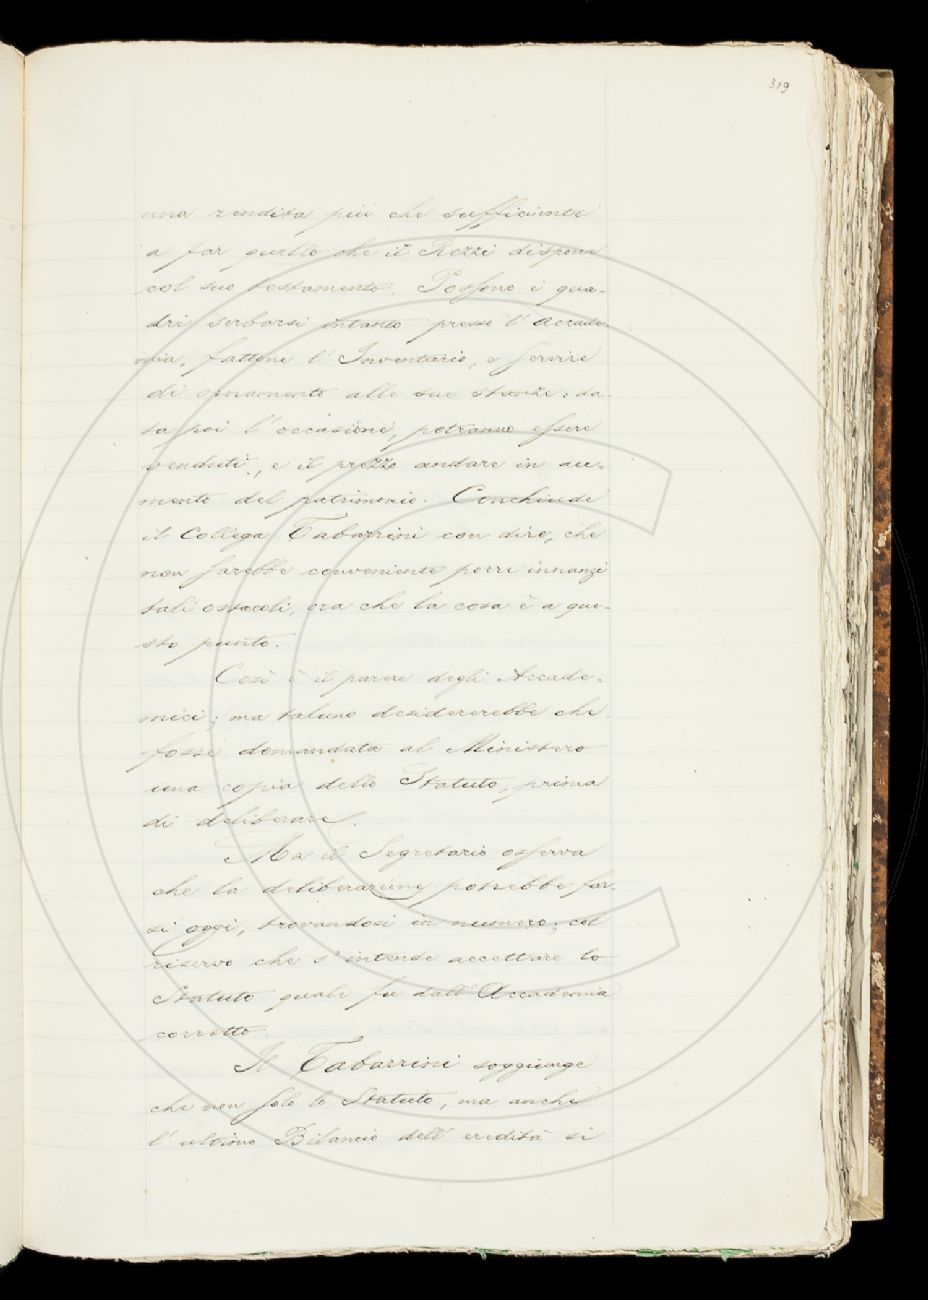 319
una rendita più che sufficiente
a far quello che il Rezzi dispone
col suo testamento. Possono i qua-
dri serbarsi intanto presso l'Accade-
mia, fattone l'Inventario, e servire
di ornamento alle sue stanze: da-
ta poi l'occasione, potranno essere
venduti, e il prezzo andare in au-
mento del patrimonio. Conchiude
il Collega Tabarrini con dire, che
non sarebbe conveniente porre innanzi
tali ostacoli, ora che la cosa è a que-
sto punto.
Così è il parere degli Accade-
mici; ma taluno desidererebbe che
fosse domandata al Ministero
una copia dello Statuto, prima
di deliberare.
Ma il Segretario osserva
che la deliberazione potrebbe far-
si oggi, trovandosi in numero; col
riservo che s'intende accettare lo
Statuto quale fu dall'Accademia
corretto.
Il Tabarrini soggiunge
che non solo lo Statuto, ma anche
l'ultimo Bilancio dell'eredità si